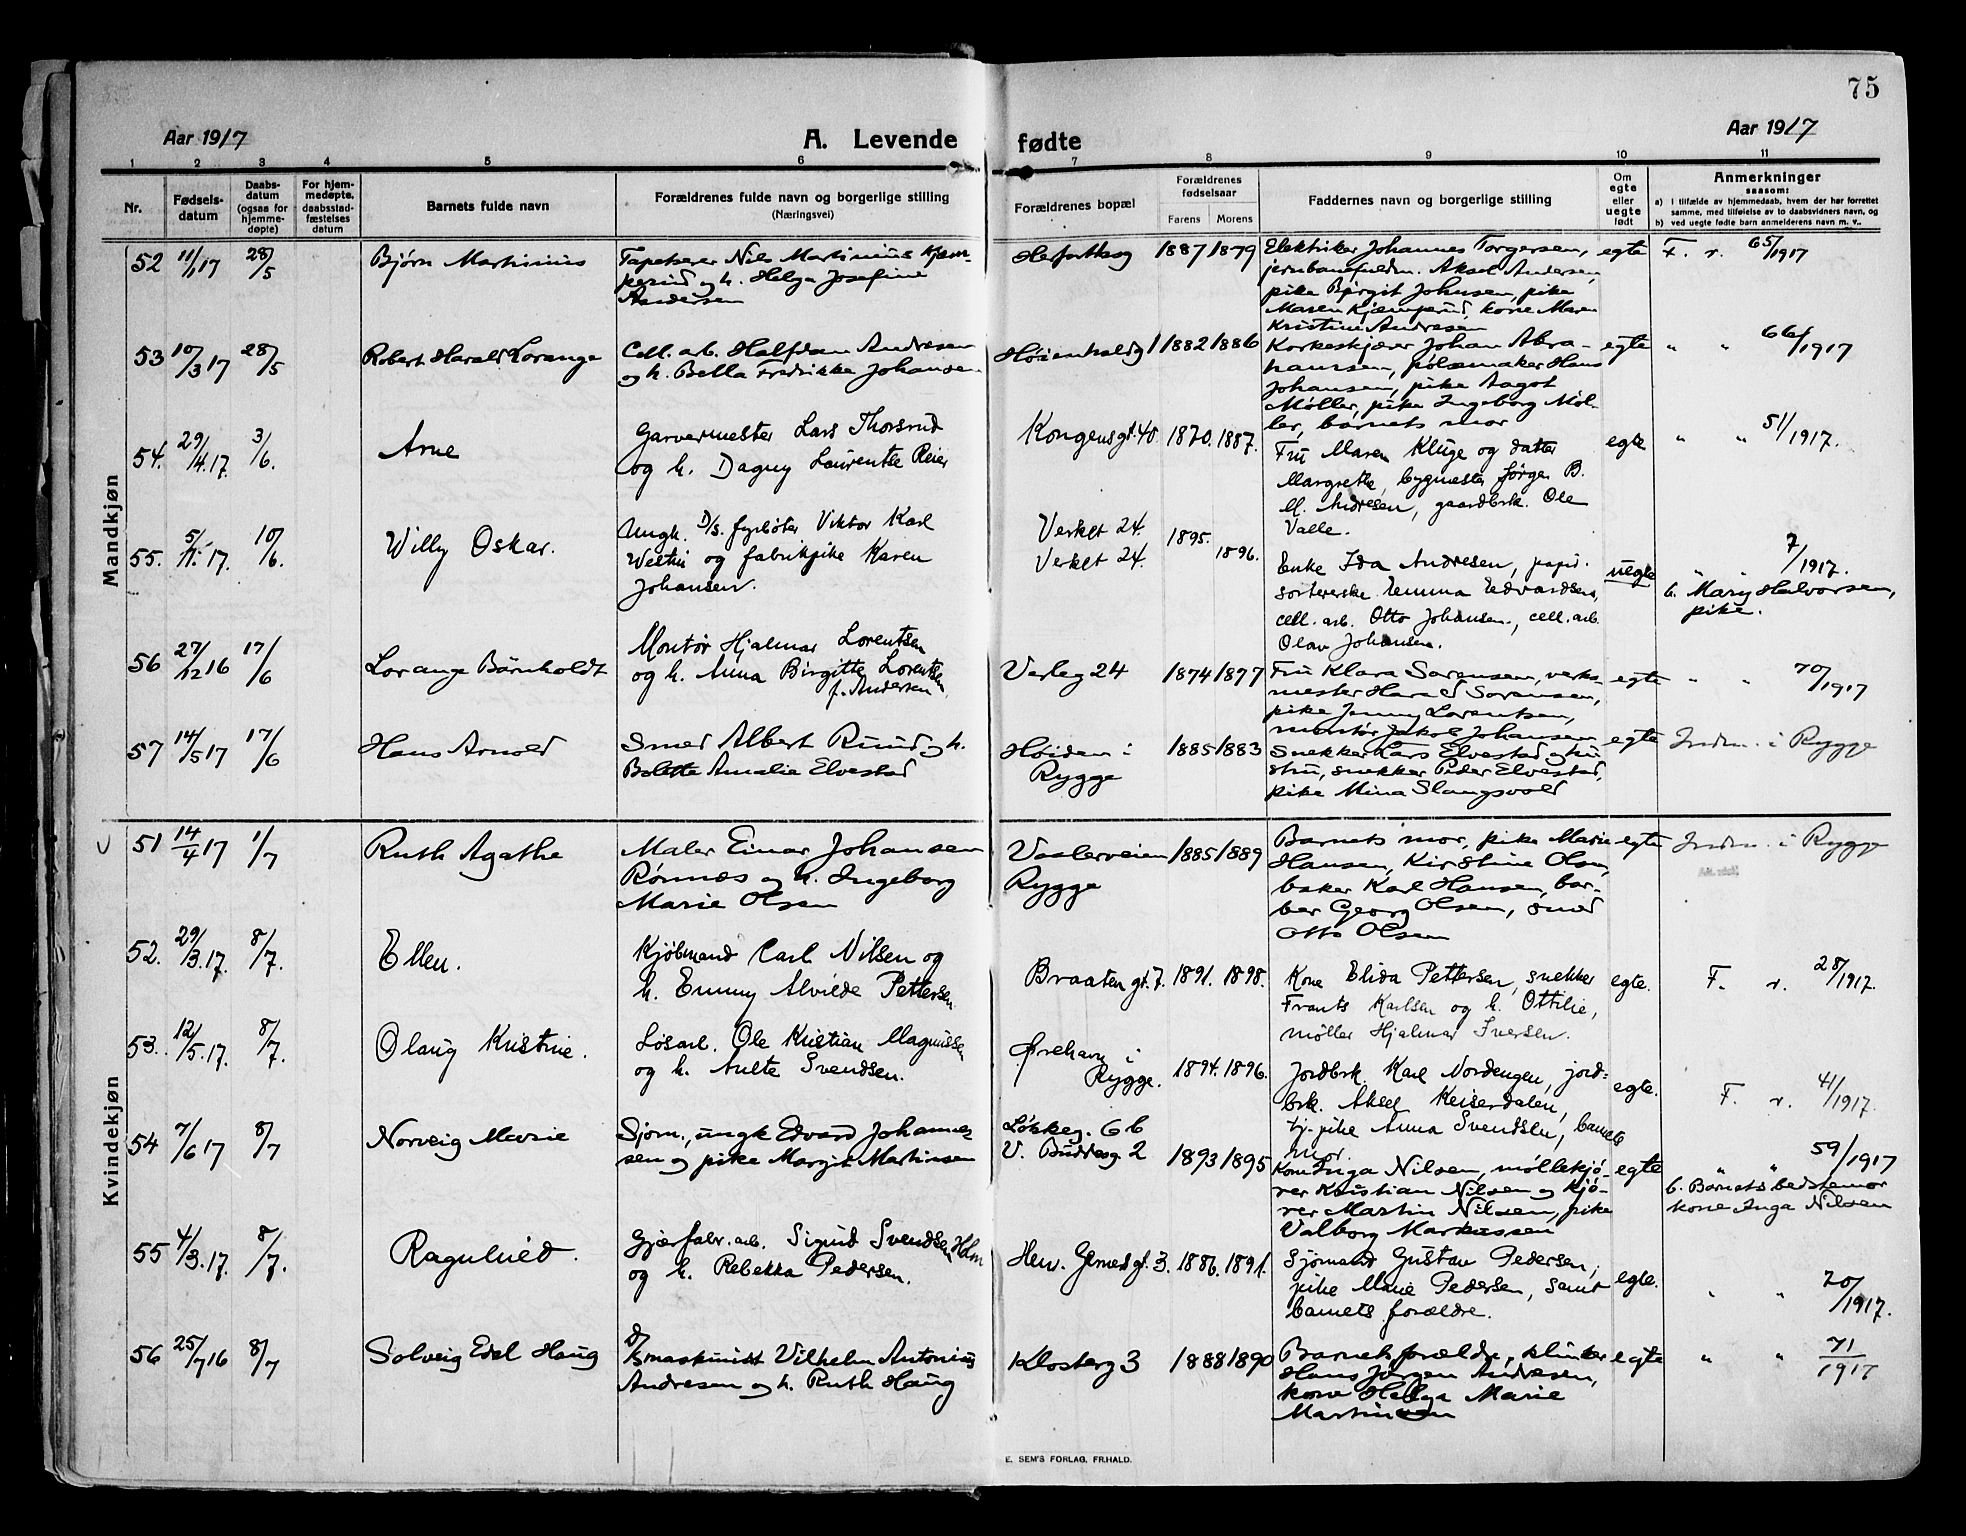 75
Aar 1917
A. Levende fødte
Aar 1917
1 2 3 4 5 6 7 8 9 10 11
Nr.
Fødsels-
datum
Daabs-
datum
(ogsaa for
hjemme-
døpte)
For hjem-
medøpte,
daabsstad-
fæstelses
datum
Barnets fulde navn
Forældrenes fulde navn og borgerlige stilling
(Næringsvei)
Forældrenes bopæl
Forældrenes
fødselsaar
Farens Morens
Faddernes navn og borgerlige stilling
Om
egte
eller
uegte
født
Anmerkninger
saasom:
a) I tilfælde av hjemmedaab, hvem der har forrettet
samme, med tilføielse av to daabsvidners navn, og
b) ved uegte fødte barn anmelderens navn m. v..
Mandkjøn
52 11/1 17 28/5 Bjørn Martinius
Tapetserer Nils Martinius Kjæm-
perud og h. Helga Josefine
Andersen
1887 1879
Elektriker Johannes Torgersen,
jernbanefuldm. Aksel Andersen,
pike Birgit Johnsen, pike
Maren Kjæmperud, kone Maren
Kristine Andresen
egte
F. r. 65/1917
53 10/3 17 28/5 Robert Harald Lorange
Cell. arb. Halfdan Andresen
og h. Bella Fredrikke Johansen
1882 1886
Korkeskjærer Johan Abra-
hamsen, pølsemaker Hans
Johansen, pike Aagot
Møller, pike Ingeborg Møl-
ler, barnets mor
egte
" " 66/1917
54. 29/4. 17. 3/6. Arne
Garvermester Lars Thorsrud
og h. Dagny Laurentse Reier
Kongensgt. 40.
1870. 1887.
Fru Maren Kluge og datter
Margrethe, bygmester Jørgen B.
M. Andresen, gaardbrk. Ole
Valle.
egte
" " 51/1917.
55. 5/ 17. 10/6. Willy Oskar.
Ungk. D/s. fyrbøter Viktor Karl
Westin og fabrikpike Karen
Johansen.
Verket 24.
Verket 24.
1895.
1896.
Enke Ida Andresen, papir.
sortererske Emma Edvardsen,
cell. arb. Otto Johansen., cell. arb.
Olav Johansen.
uegte
" " 7/1917.
b. Mary Halvorsen,
pike.
56 27/12 16 17/6 Lorange Bärnholdt
Montør Hjalmar Lorentsen
og h. Anna Birgitte Lorentsen
f. Andersen
Verleg 24
1874 1877
Fru Klara Sørensen, verks-
mester Harald Sørensen,
pike Jenny Lorentsen,
montør Jakob Johansen
egte
" " 70/1917
57 14/5 17 17/6 Hans Arnold
Smed Albert Ruud og h.
Bolette Amalie Elvestad
Høiden i
Rygge
1885 1883
Snekker Lars Elvestad og hu-
stru, snekker Peder Elvestad,
pike Mina Slangsvold
egte
Indm. i Rygge
Kvindekjøn
51 14/4 17 1/7 Ruth Agathe
Maler Einar Johansen
Rønnes og h. Ingeborg
Marie Olsen
Vaalerveien
Rygge
1885 1889
Barnets mor, pike Marie
Hansen, Kirstine Olsen,
baker Karl Hansen, bar-
ber Georg Olsen, smed
Otto Olsen
egte
Indm. i Rygge
52. 29/3. 17. 8/7. Ellen.
Kjøbmand Carl Nilsen og
h. Emmy Alvilde Pettersen.
Braaten gt. 7.
1891. 1898.
Kone Elida Pettersen, snekker
Frants Karlsen og h. Ottilie,
møller Hjalmar Iversen.
egte.
F. r. 28/1917.
53. 12/5. 17. 8/7. Olaug Kristine.
Løsarb. Ole Kristian Magnussen
og h. Anlte Svendsen.
Ørehavn i
Rygge.
1894. 1896.
Jordbrk. Karl Nordengen, jord-
brk. Aksel Keiserdalen,
tj. pike Anna Svendsen, barnets
mor.
egte.
F. r. 41/1917.
54 7/6 17 8/7 Norveig Marie
Sjøm., ungk Edvard Johannes-
sen og pike Margit Martinsen
Løkkeg. 6 b
1893 1895
Kone Inga Nilsen, møllekjø-
rer Kristian Nilsen og kjø-
rer Martin Nilsen, pike
Valborg Markussen
egte
" " 59/1917
b. Barnets bedstemor
kone Inga Nilsen
55 4/3. 17. 8/7. Ragnhild.
Gjærfabr. arb. Sigurd Svendsen Holm
og h. Rebekka Pedersen.
Hen. Gernersgt. 3.
1886. 1891.
Sjømand Gustav Pedersen,
pike Marie Pedersen, samt
barnets forældre.
egte.
" " 70/1917.
56 25/7 16 8/7 Solveig Edel Haug
D/Smaskinist Vilhelm Antonius
Andresen og h. Ruth Haug
Klosterg 3
1888 1890
Barnets forældre, klinker
Hans Jørgen Andresen,
kone Helga Marie
Martinsen
egte
" " 71/1917
E. SEM'S FORLAG, FR.HALD.